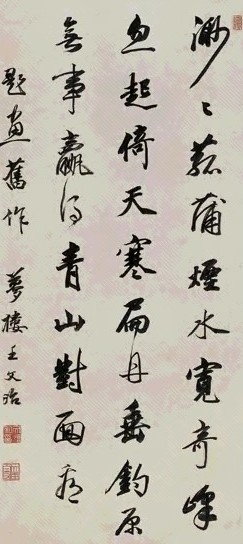 渺〻菰蒲煙水寬奇峰
忽起倚天寒扁舟垂釣原
無事贏得青山對面看
題畫舊作 夢樓王文治